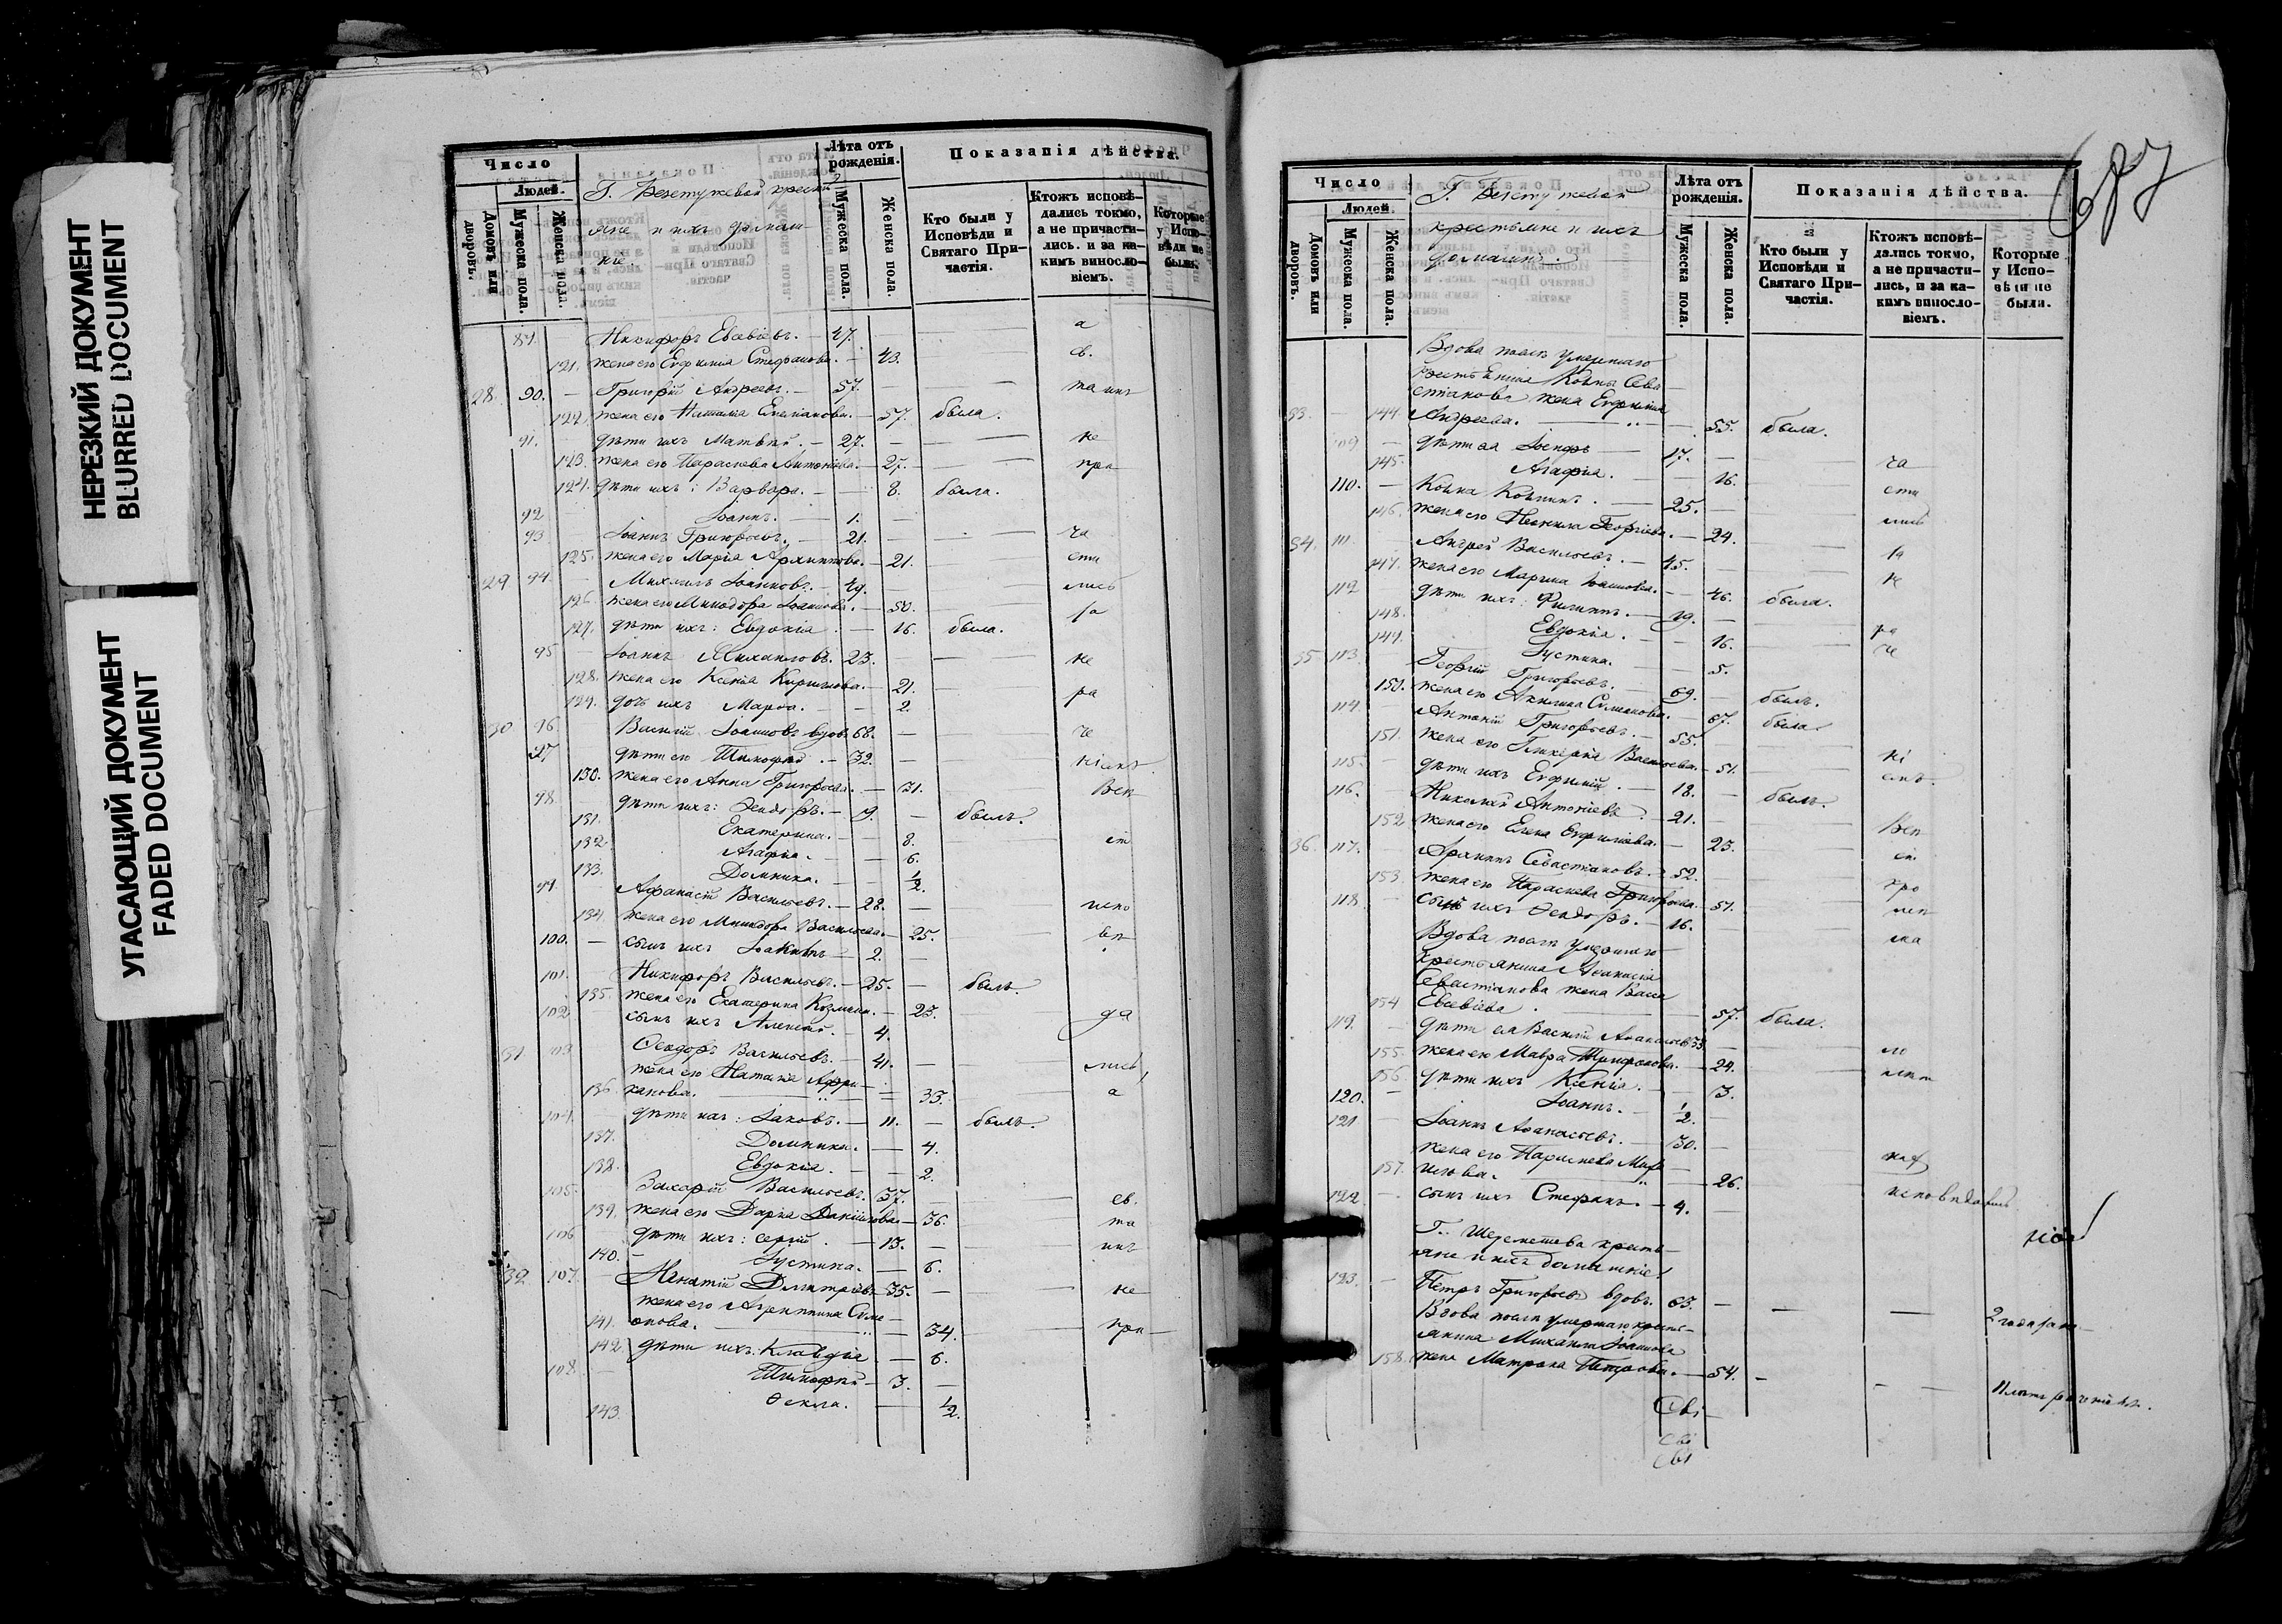 НЕРЕЗКИЙ ДОКУМЕНТ
BLURRED DOCUMENT
УГАСАЮЩИЙ ДОКУМЕНТ
FADED DOCUMENT
Число
Людей.
Домовъ или дворовъ.
Мужеска пола.
Женска пола.
Г. Безстужевой крестья
яне и ихъ домаш
ніе.
Лѣта отъ рожденія.
Мужеска пола.
Женска пола.
Показанія дѣйства.
Кто были у Исповѣди и Святаго Причастія.
Ктожъ исповѣдались токмо, а не причастились. и за какимъ винословіемъ.
Которые у Исповѣди не были.
89. Никифоръ Евсевіевъ. — 47. а
121. жена его Евфимія Стефанова. — 43. св.
28. 90. — Григорій Андреевъ. — 57. таинъ
122. жена его Наталія Емеліанова. — 57. была.
91. дѣти ихъ Матвѣй. — 27. — не
123. жена его Параскева Антоніева. — 27. — при
124. дѣти ихъ: Варвара. — 8. была.
92 Іоаннъ. — 1. —
93. Іоаннъ Григорьевъ. — 21. — ча
125. жена его Марія Архиппова. — 21. сти
29 94. Михаилъ Іоанновъ. — 49. — лись
126. жена его Минодора Іоаннова. — 50. за
127. дѣти ихъ: Евдокія — 16. была.
95 — Іоаннъ Михаиловъ. 23. — не
128. жена его Ксенія Кириллова. — 21.
129. дочь ихъ Марѳа. — 2. ра
30 96. Василій Іоанновъ вдовъ 68. — че
97 дѣти его Тимофей. — 32. — ніемъ
130. жена его Анна Григорьева. — 31. Всп
98. дѣти ихъ: Ѳеодоръ. — 9. — былъ.
131. Екатерина. — 8. ст
132 Агафія. — 6.
133. Домника. — 1/2.
99. Афанасій Васильевъ. — 28. — испо
134. жена его Минодора Васильева. — 25. вѣ
100. — сынъ ихъ Іоакимъ — 2. —
101. Никифоръ Васильевъ. — 25. — былъ.
135. жена его Екатерина Козмина. — 23. да
102 сынъ ихъ Алексѣй. — 4.
31 103 Ѳеодоръ Васильевъ. — 41. — лись,
жена его Наталія Афри-
136. канова. — 33. а
104. дѣти ихъ: Іаковъ. — 11. — былъ.
137. Домника. — 4.
138. Евдокія. — 2.
105. Захарій Васильевъ. 37. св.
139. жена его Дарія Даніилова — 36. та
106 дѣти ихъ: Сергій. — 13. — инъ
140. — Іустина. — 6.
32. 107. — Игнатій Димитріевъ 35. — не
жена его Агриппина Симе-
141. онова. — 34. при
142. дѣти ихъ: Клавдія — 6.
108. Тимофей — 3. —
143. Ѳекла. — 1/2.
Число
Людей.
Домовъ или дворовъ.
Мужеска пола.
Женска пола.
Г. Безстужевой
крестьяне и ихъ
домашн.
Лѣта отъ рожденія.
Мужеска пола.
Женска пола.
Показанія дѣйства.
Кто были у Исповѣди и Святаго Причастія.
Ктожъ исповѣдались токмо, а не причастились, и за какимъ винословіемъ.
Которые у Исповѣди не были.
Вдова послѣ умершаго
крестьянина Козмы Сева-
стіанова жена Евфимія
33. — 144 Андреева. — 55. была.
109 — дѣти ея Іосифъ — 17. — ча
145. Агафія. — 16. сти
110. — Козма Козминъ. — 25. — лись
146. жена его Неонила Георгіева. — 24.
34. 111. Андрей Васильевъ. — 45. — за
147. жена его Марина Іоаннова. — 46. была. не
112 дѣти ихъ: Филиппъ. — 19. —
148. Евдокія. — 16. ра
149. Іустина. — 5. че
35 113. Георгій Григорьевъ. — 69. — былъ.
150. жена его Акилина Симеонова. — 67. была.
114. Антоній Григорьевъ. — 55.
151. жена его Гликерія Васильева. — 51. ні
115. — дѣти ихъ Евфимій. — 18. — былъ. емъ
116. — Николай Антоніевъ. 21. —
152 жена его Елена Евфиміева. — 23. Всп
36. 117. Архиппъ Севастіановъ. — 52. — ст.
153. жена его Параскева Григорьева. — 51. хро
118 — сынъ ихъ Ѳеодоръ. — 16. — мск
Вдова послѣ умершаго ска
крестьянина Аѳанасія
Севастіанова жена Васса
154 Евсевіева. — 57. была.
119. — дѣти ея Василій Аѳанасьевъ 33. —
155. жена его Мавра Трифонова. — 24.
156. дѣти ихъ Ксенія. — 3.
120. — Іоаннъ. — 1/2.
121 — Іоаннъ Аѳанасьевъ. — 30. —
жена его Параскева Миха
157. илова. — 26.
122 — сынъ ихъ Стефанъ. — 4. — исповѣдались
Г. Шереметева кресть-
яне и ихъ домашніе.
123. — Петръ Григорьевъ вдовъ. 63. — 2 года
Вдова послѣ умершаго кресть-
янина Михаила Іоаннова
158. жена Матрона Петрова. — 54. —
Сві-